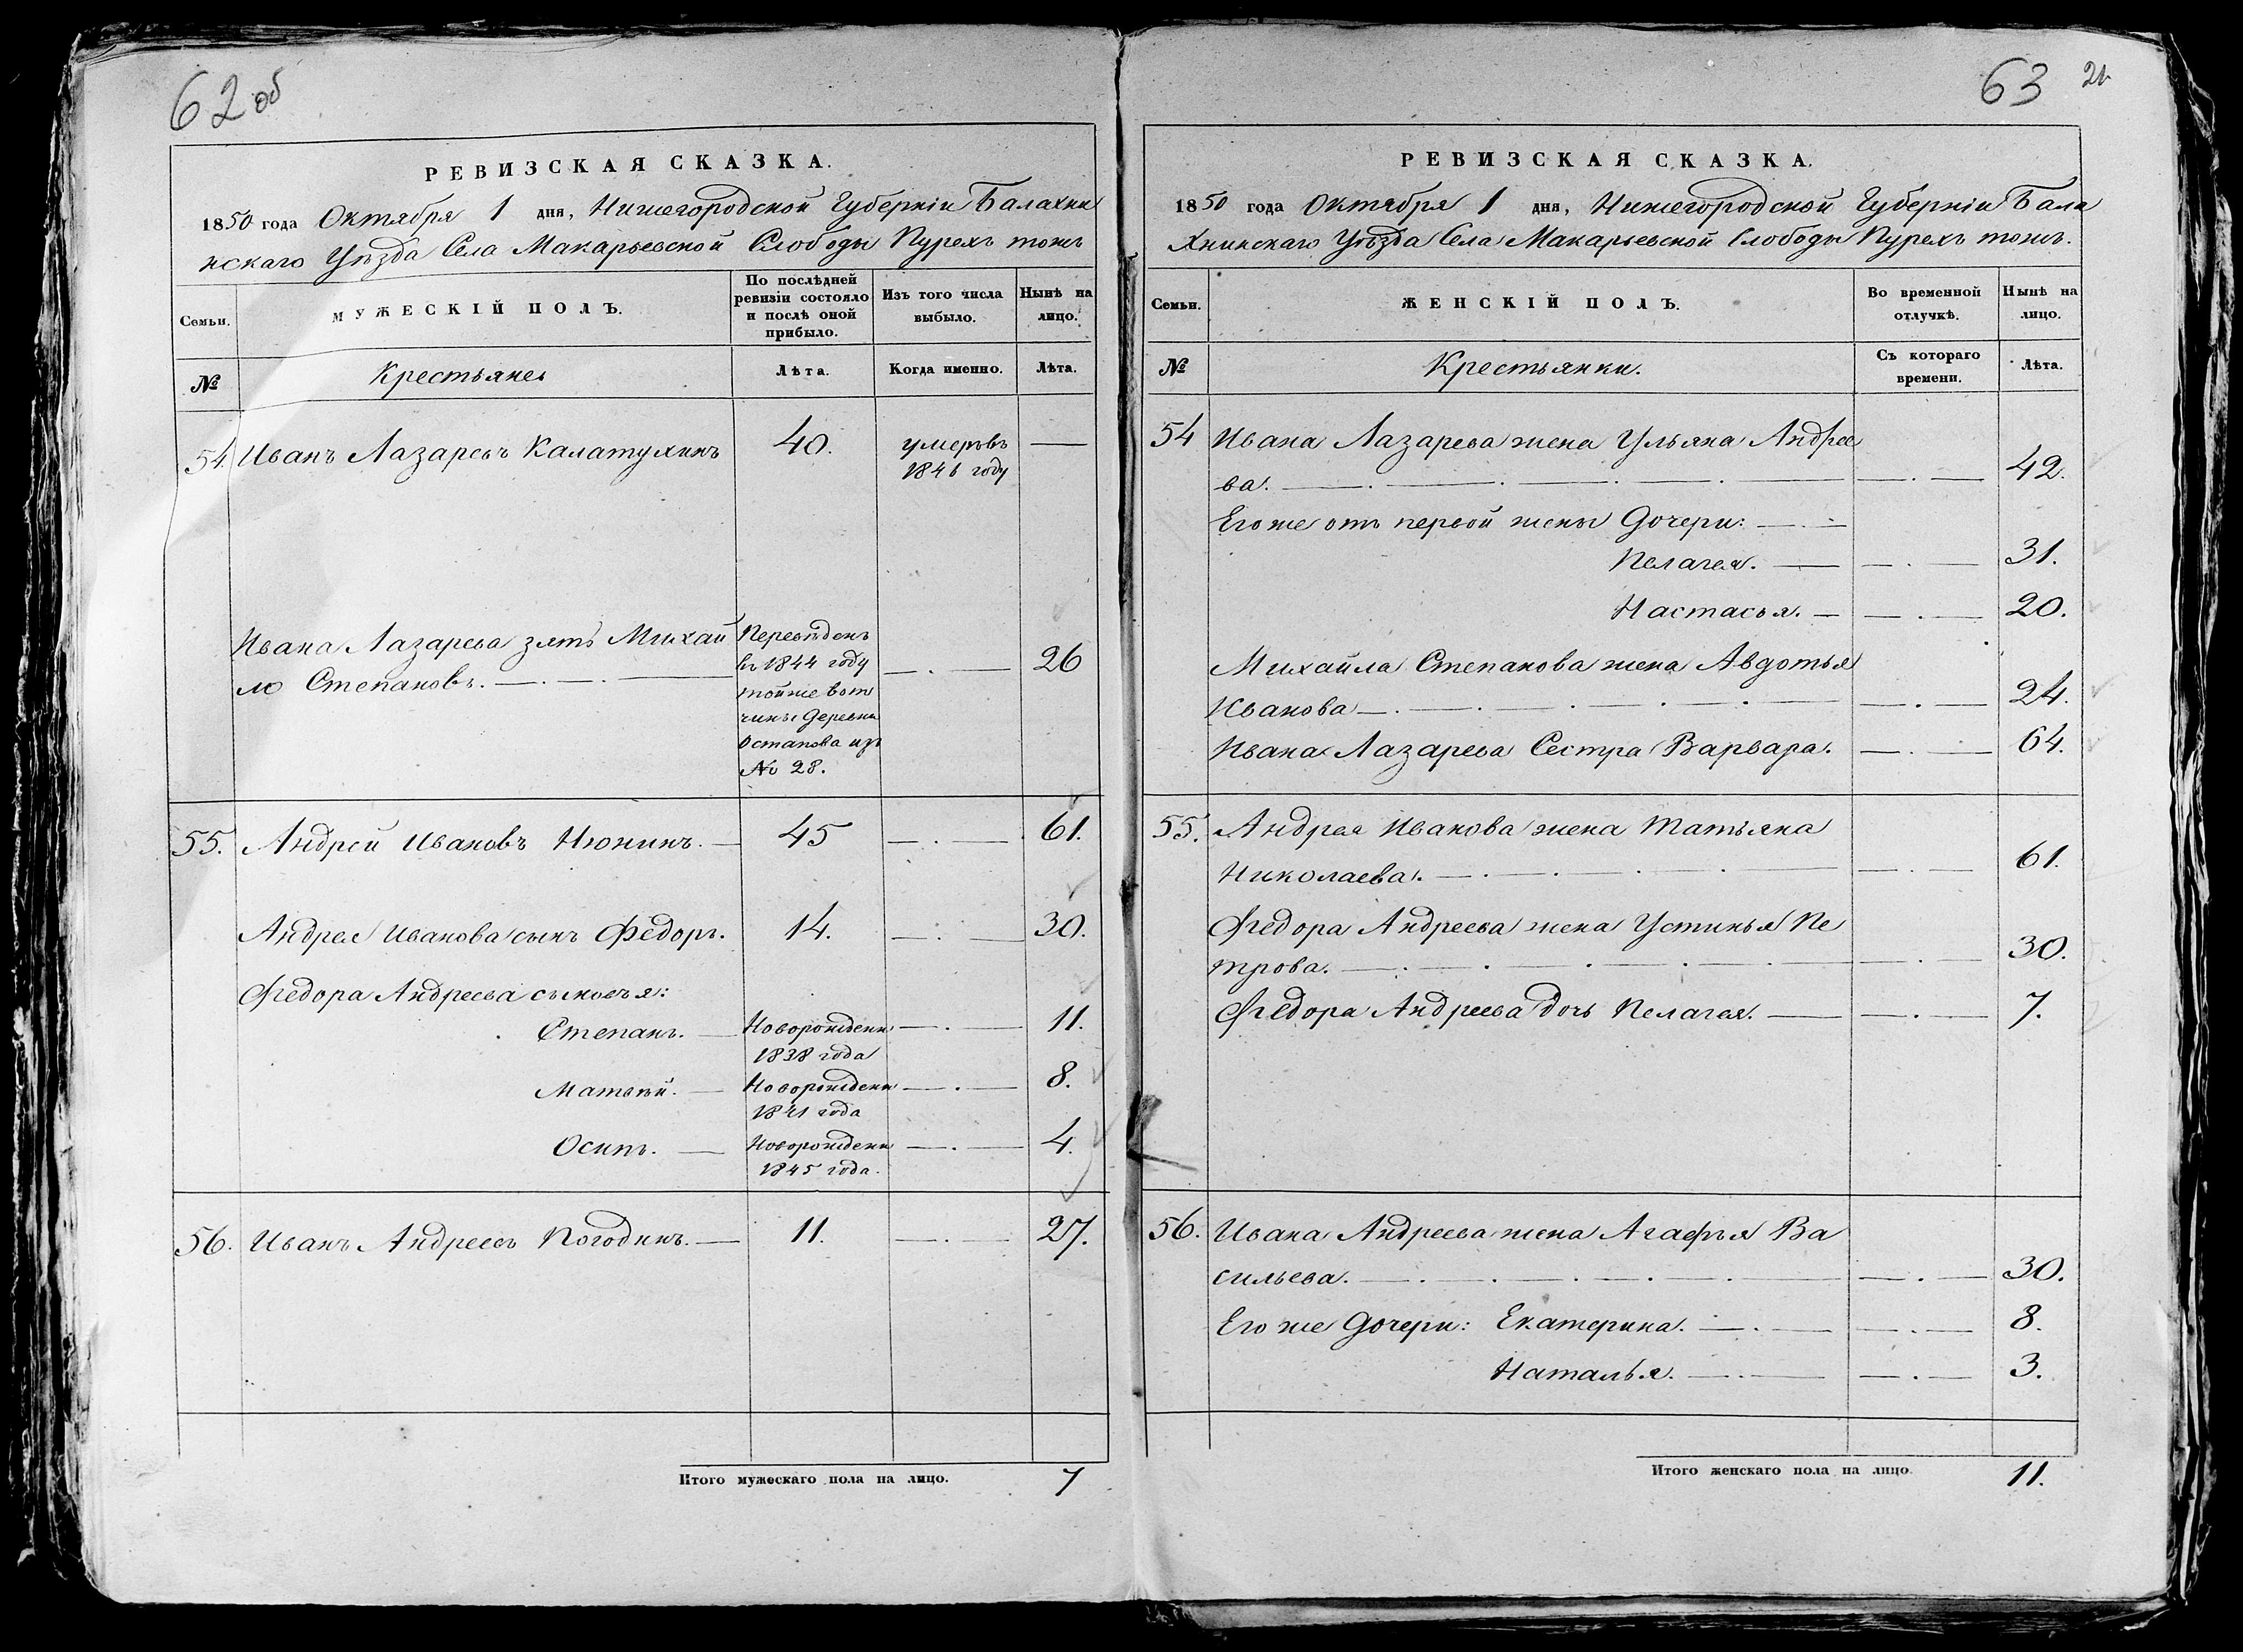 62 об
РЕВИЗСКАЯ СКАЗКА.
1850 года Октября 1 дня, Нижегородской Губерніи Балахни
нскаго Уѣзда Села Макарьевской Слободы Пурехъ тожъ
Семьи. МУЖЕСКІЙ ПОЛЪ. По послѣдней ревизіи состояло и послѣ оной прибыло. Изъ того числа выбыло. Нынѣ на лицо.
№ Крестьяне Лѣта. Когда именно. Лѣта.
54. Иванъ Лазаревъ Калатухинъ 40. умеръ въ —
1846 году
Ивана Лазарева зять Михаи Переведенъ
ло Степановъ. въ 1844 году 26
тойже вот
чины деревни
Остапова изъ
№ 28.
55. Андрей Ивановъ Нюнинъ. 45 61.
Андрея Иванова сынъ Федоръ. 14. 30.
Федора Андреева сыновья:
Степанъ. Новорожденн 11.
1838 года
Матвѣй. Новорожденн 8.
1841 года
Осипъ. Новорожденн 4.
1845 года.
56. Иванъ Андреевъ Погодинъ. 11. 27.
Итого мужескаго пола на лицо. 7
63 21
РЕВИЗСКАЯ СКАЗКА.
1850 года Октября 1 дня, Нижегородской Губерніи Бала
хнинскаго Уѣзда Села Макарьевской Слободы Пурехъ тожъ.
Семьи. ЖЕНСКІЙ ПОЛЪ. Во временной отлучкѣ. Нынѣ на лицо.
№ Крестьянки. Съ котораго времени. Лѣта.
54 Ивана Лазарева жена Ульяна Андрее
ва. 42.
Его же отъ первой жены Дочери:
Пелагея. 31.
Настасья. 20.
Михайла Степанова жена Авдотья
Иванова 24.
Ивана Лазарева Сестра Варвара. 64.
55. Андрея Иванова жена Татьяна
Николаева. 61.
Федора Андреева жена Устинья Пе
трова. 30.
Федора Андреева дочь Пелагея. 7.
56. Ивана Андреева жена Агафья Ва
сильева. 30.
Его же Дочери: Екатерина. 8.
Наталья. 3.
Итого женскаго пола на лицо 11.